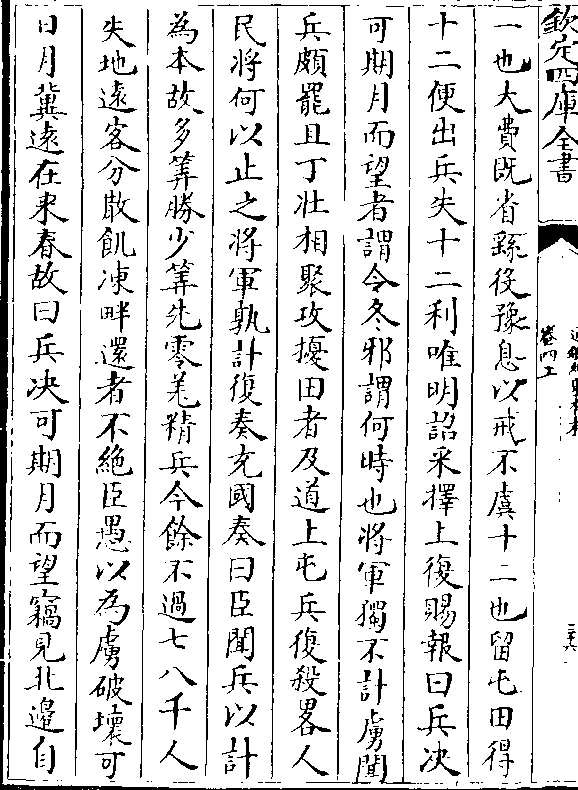 欽定四庫全書
卷四上
一也大費既省繇役豫息以戒不虞十二也留屯田得
十二便出兵失十二利唯明詔采擇上復賜報曰兵决
可期月而望者謂今冬邪謂何時也將軍獨不計虜聞
兵頗罷且丁壯相聚攻擾田者及道上屯兵復殺畧人
民將何以止之將軍孰計復奏充國奏曰臣聞兵以計
為本故多筭勝少筭先零羌精兵今餘不過七八千人
失地遠客分散飢凍畔還者不絶臣愚以為虜破壞可
日月冀遠在来春故曰兵决可期月而望竊見北邊自